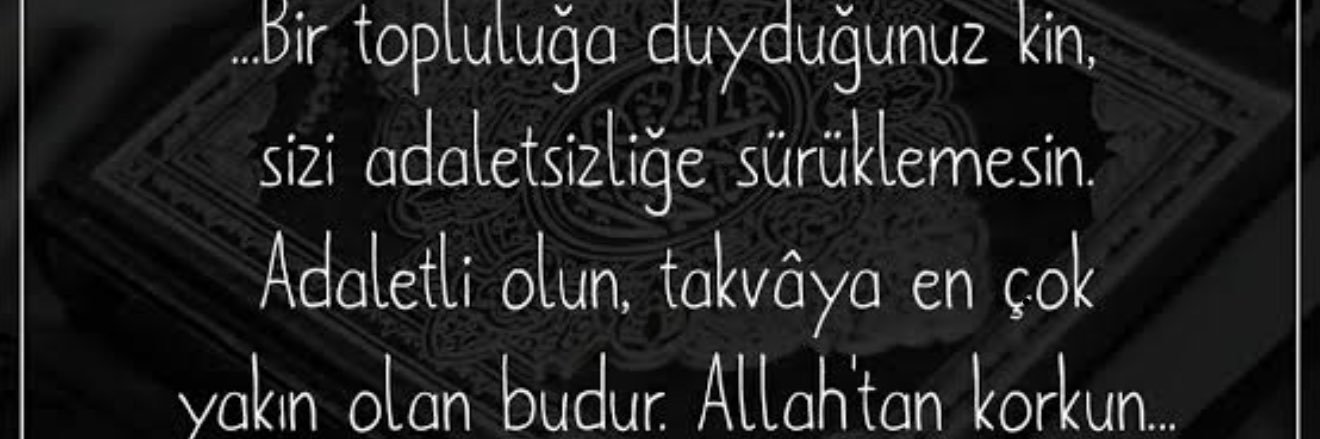 ...Bir topluluğa duyduğunuz kin,
sizi adaletsizliğe sürüklemesin.
Adaletli olun, takvâya en çok
yakın olan budur. Allah'tan korkun...